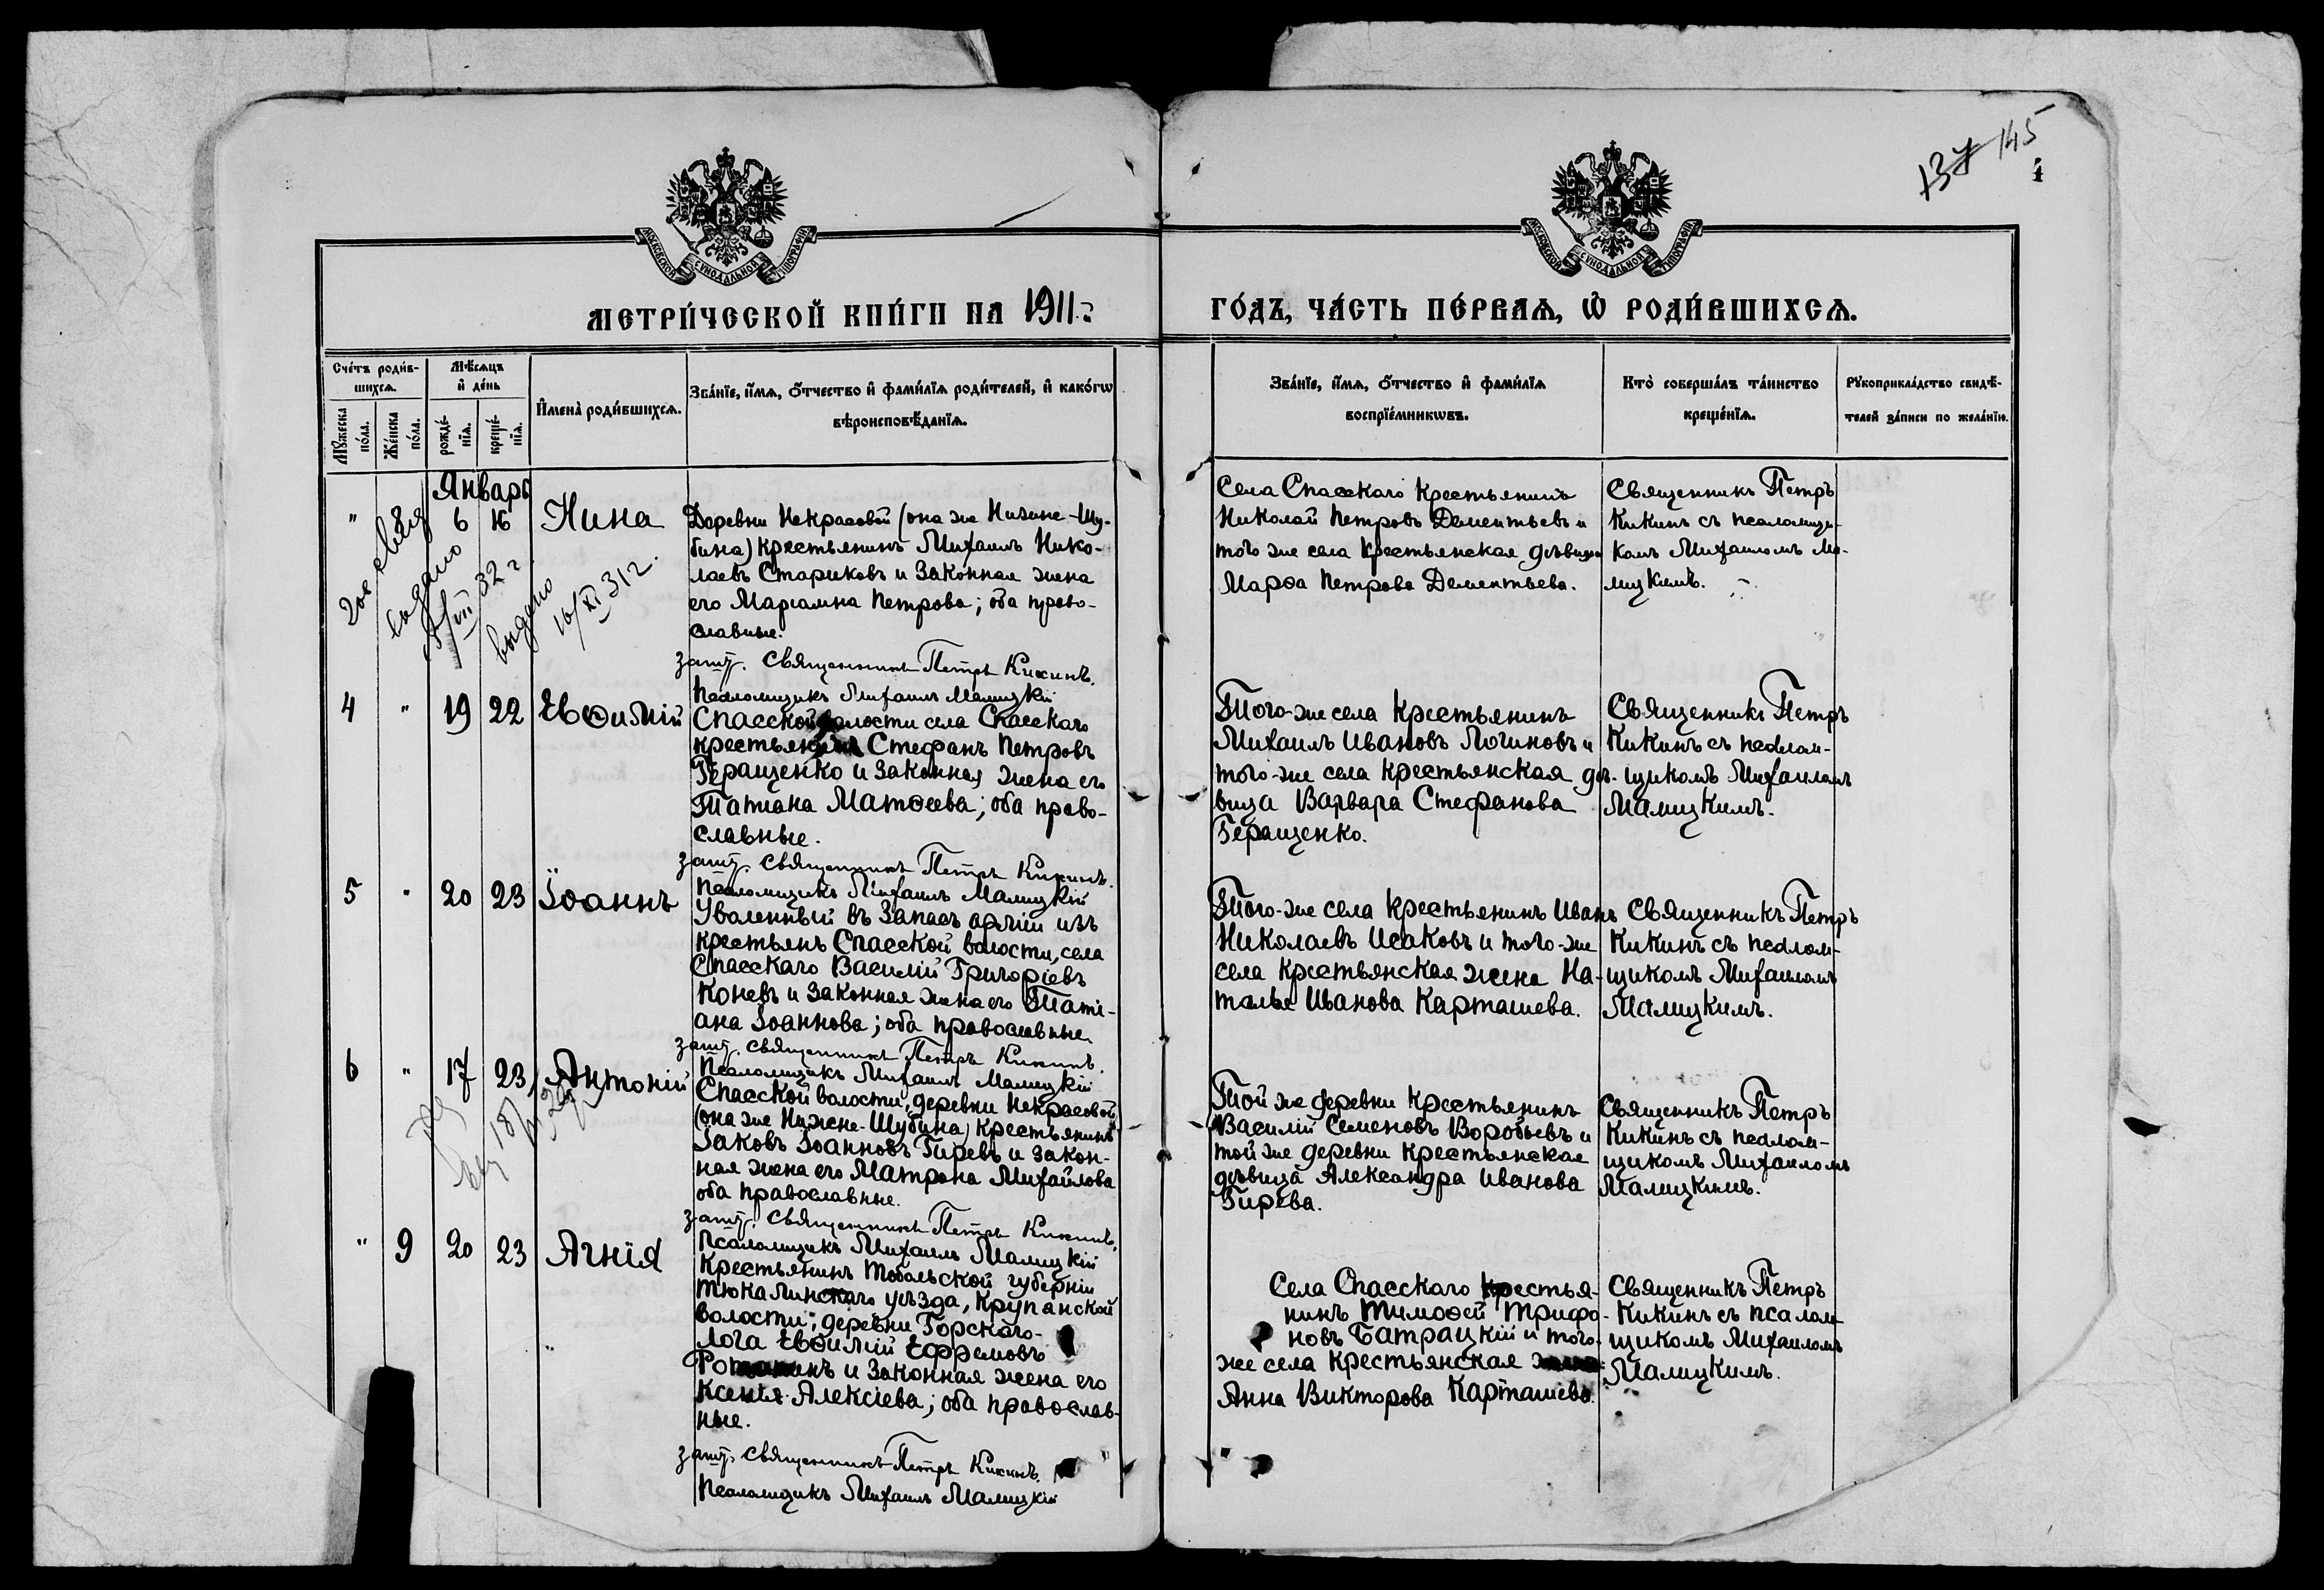 137 145
1
МОСКОВСКОЙ СѴНОДАЛЬНОЙ ТИПОГРАФІИ
МОСКОВСКОЙ СѴНОДАЛЬНОЙ ТИПОГРАФІИ
МЕТРИ́ЧЕСКОЙ КНИ́ГИ НА 1911
ГО́ДЪ, ЧА́СТЬ ПЕ́РВАѦ, Ѡ РОДИ́ВШИХСѦ.
Сче́тъ роди́в-
шихсѧ.
Мꙋжеска по́ла.
Же́нска по́ла.
Мѣ́сѧцъ и де́нь
рожде́-
нїѧ.
креще́-
нїѧ.
И҆мена̀ роди́вшихсѧ.
Зва́нїе, и҆́мѧ, ѻ҆́тчество и҆ фами́лїѧ роди́телей, и҆ како́гѡ
вѣроисповѣ́данїѧ.
Зва́нїе, и҆́мѧ, ѻ҆́тчество и҆ фами́лїѧ
воспрїе́мникѡвъ.
Кто̀ соверша́лъ та́инство
креще́нїѧ.
Рꙋкоприкла́дство свидѣ́-
телей за́писи по жела́нїю.
Январь
" 8 6 16 Нина
выдано
VIII 32 г
выдано
16/XI 31 г.
Деревни Некрасовой (она же Нижне-Шу-
бина) крестьянинъ Михаилъ Нико-
лаевъ Стариковъ и законная жена
его Маріамна Петрова; оба право-
славные.
Священникъ Петръ Кикинъ.
Псаломщикъ Михаилъ Малицкій
Села Спасскаго крестьянинъ
Николай Петровъ Дементьевъ и
того же села крестьянская дѣвица
Марѳа Петрова Дементьева.
Священникъ Петръ
Кикинъ съ псаломщи-
комъ Михаиломъ Ма-
лицкимъ.
4 " 19 22 Евѳимій
Спасской волости села Спасскаго
крестьянинъ Стефанъ Петровъ
Геращенко и законная жена его
Татіана Матѳеева; оба право-
славные.
Священникъ Петръ Кикинъ.
Псаломщикъ Михаилъ Малицкій
Того-же села крестьянинъ
Михаилъ Ивановъ Логиновъ и
того-же села крестьянская дѣ-
вица Варвара Стефанова
Геращенко.
Священникъ Петръ
Кикинъ съ псалом-
щикомъ Михаиломъ
Малицкимъ.
5 " 20 23 Іоаннъ
Уволенный въ запасъ арміи изъ
крестьянъ Спасской волости, села
Спасскаго Василій Григоріевъ
Коневъ и законная жена его Таті-
ана Іоаннова; оба православные.
Священникъ Петръ Кикинъ.
Псаломщикъ Михаилъ Малицкій
Того-же села крестьянинъ Иванъ
Николаевъ Исаковъ и того-же
села крестьянская жена На-
талья Иванова Карташева.
Священникъ Петръ
Кикинъ съ псалом-
щикомъ Михаиломъ
Малицкимъ.
6 " 17 23 Антоній
Спасской волости, деревни Некрасовой
(она же Нижне-Шубина) крестьянинъ
Іаковъ Іоанновъ Гиревъ и закон-
ная жена его Матрона Михайлова
оба православные.
Священникъ Петръ Кикинъ.
Псаломщикъ Михаилъ Малицкій
Той же деревни крестьянинъ
Василій Семеновъ Воробьевъ и
той же деревни крестьянская
дѣвица Александра Иванова
Гирева.
Священникъ Петръ
Кикинъ съ псалом-
щикомъ Михаиломъ
Малицкимъ.
" 9 20 23 Агнія
Крестьянинъ Тобольской губерніи
Тюкалинскаго уѣзда, Крупянской
волости, деревни Горскаго-
Лога Евѳимій Ефремовъ
и законная жена его
Ксенія Алексіева; оба православ-
ные.
Священникъ Петръ Кикинъ.
Псаломщикъ Михаилъ Малицкій
Села Спасскаго крестья-
нинъ Тимоѳей Трифо-
новъ Батрацкій и того-
же села крестьянская
Анна Викторова Карташева.
Священникъ Петръ
Кикинъ съ псалом-
щикомъ Михаиломъ
Малицкимъ.